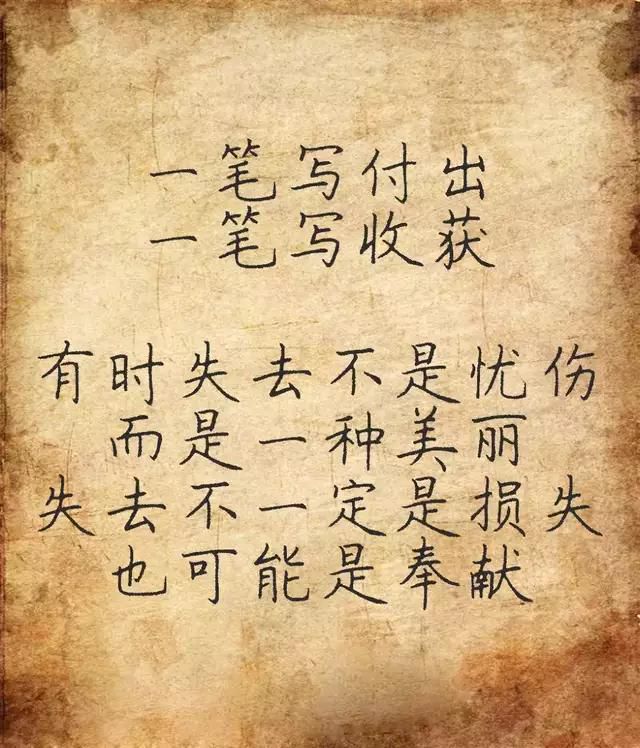 一笔写付出
一笔写收获
有时失去不是忧伤
而是一种美丽
失去不一定是损失
也可能是奉献